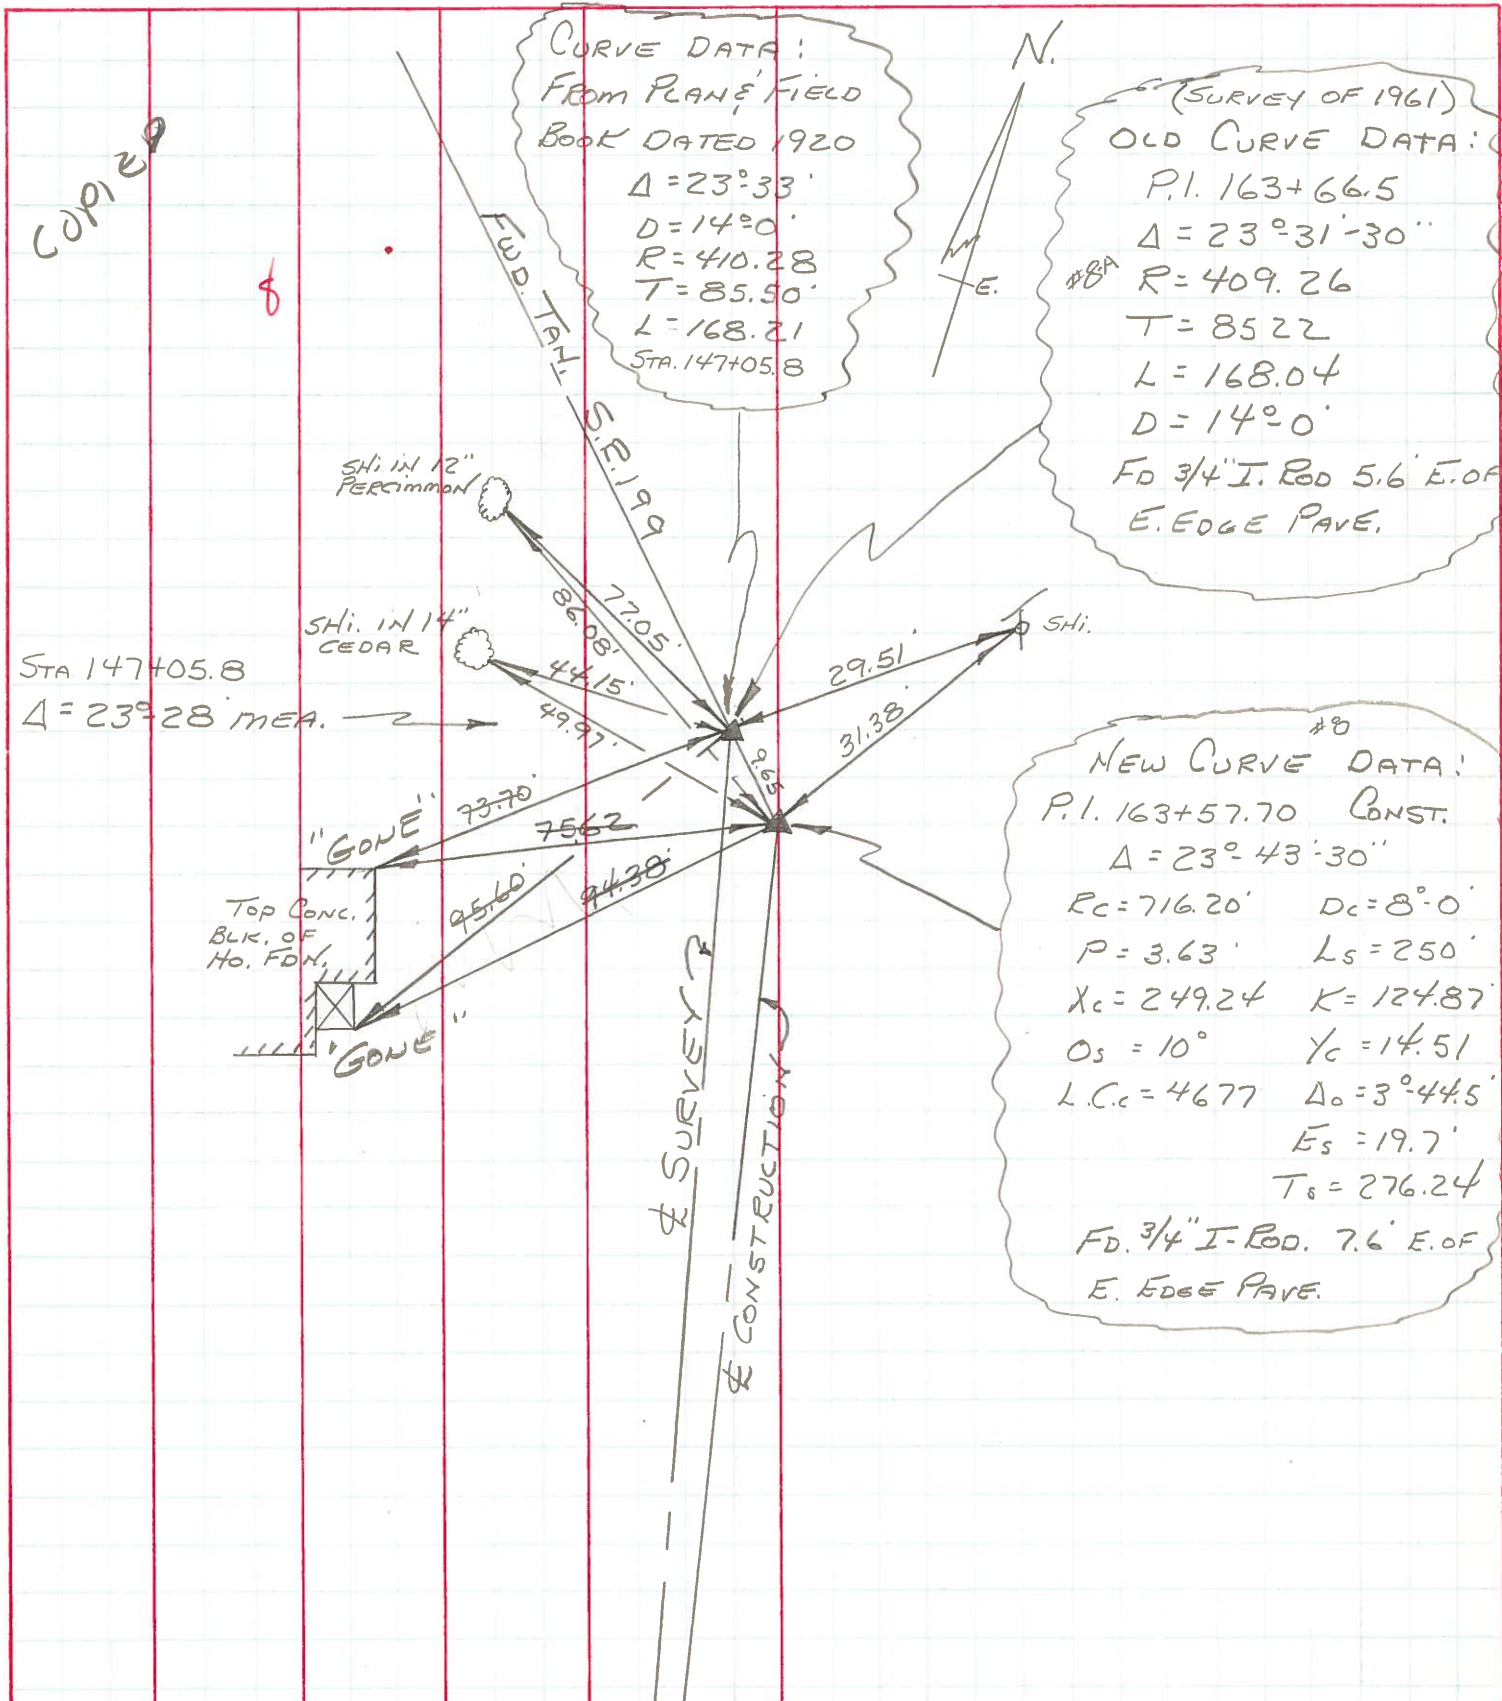 COPIED
8
CURVE DATA:
FROM PLAN & FIELD
BOOK DATED 1920
Δ = 23°-33'
D = 14°-0'
R = 410.28
T = 85.50'
L = 168.21
STA. 147+05.8
N.
E.
(SURVEY OF 1961)
OLD CURVE DATA:
P.I. 163+66.5
Δ = 23°-31'-30"
#8-A R = 409.26
T = 85 22
L = 168.04
D = 14°-0'
FD 3/4" I. ROD 5.6' E. OF
E. EDGE PAVE.
FWD. TAN. S.R. 199
SHI IN 12"
PERCIMMON
77.05'
86.08'
SHI. IN 14"
CEDAR
44.15'
49.97'
29.51'
31.38'
SHI.
STA 147+05.8
Δ = 23°-28' MEA.
9.65
73.70'
75.62
95.60'
94.38'
"GONE"
TOP CONC.
BLK. OF
HO. FDN.
"GONE"
℄ SURVEY
℄ CONSTRUCTION
#8
NEW CURVE DATA:
P.I. 163+57.70 CONST.
Δ = 23°-43'-30"
Rc = 716.20' Dc = 8°-0'
P = 3.63' Ls = 250'
Xc = 249.24 K = 124.87'
Os = 10° Yc = 14.51
L.C.c = 46 77 Δo = 3°-44.5'
Es = 19.7'
Ts = 276.24
FD. 3/4" I-ROD. 7.6' E. OF
E. EDGE PAVE.